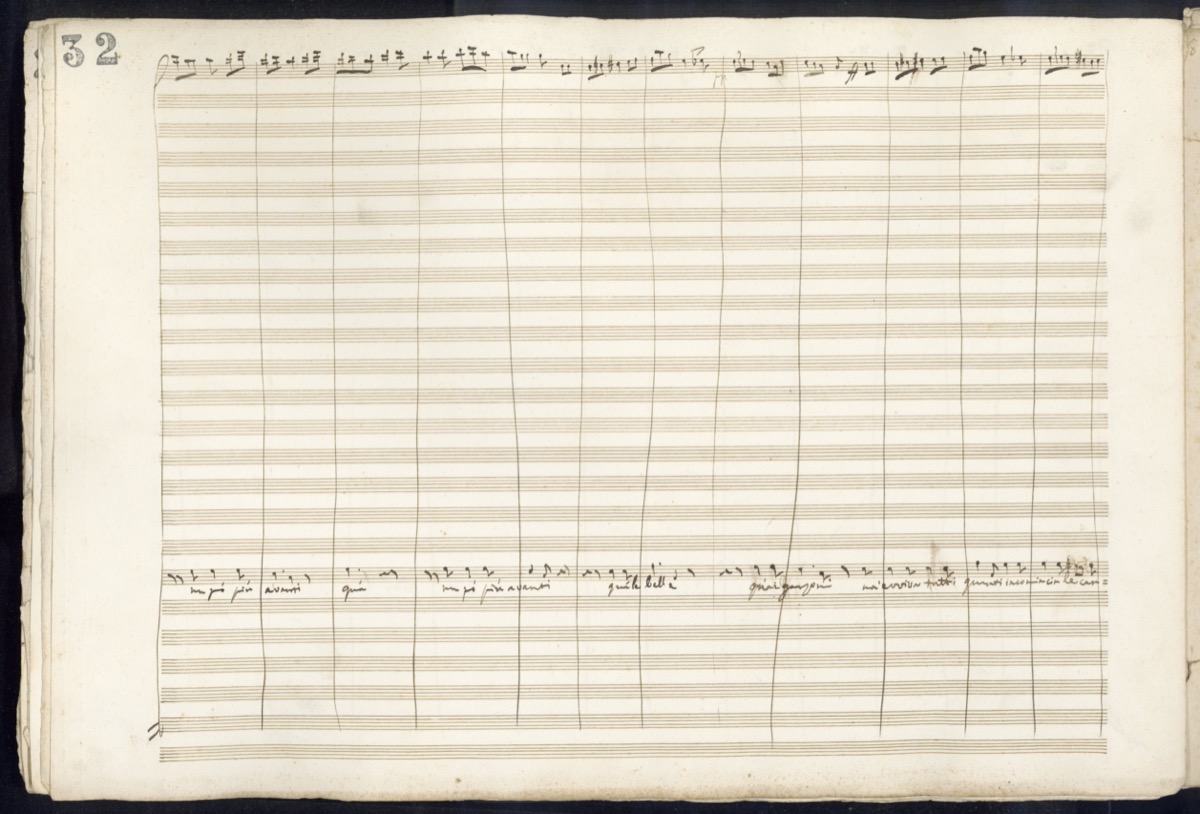 32
un pò più avanti quà un pò più avanti quì la bella quà i garzoni noi evviva tutti quanti incominci la can=